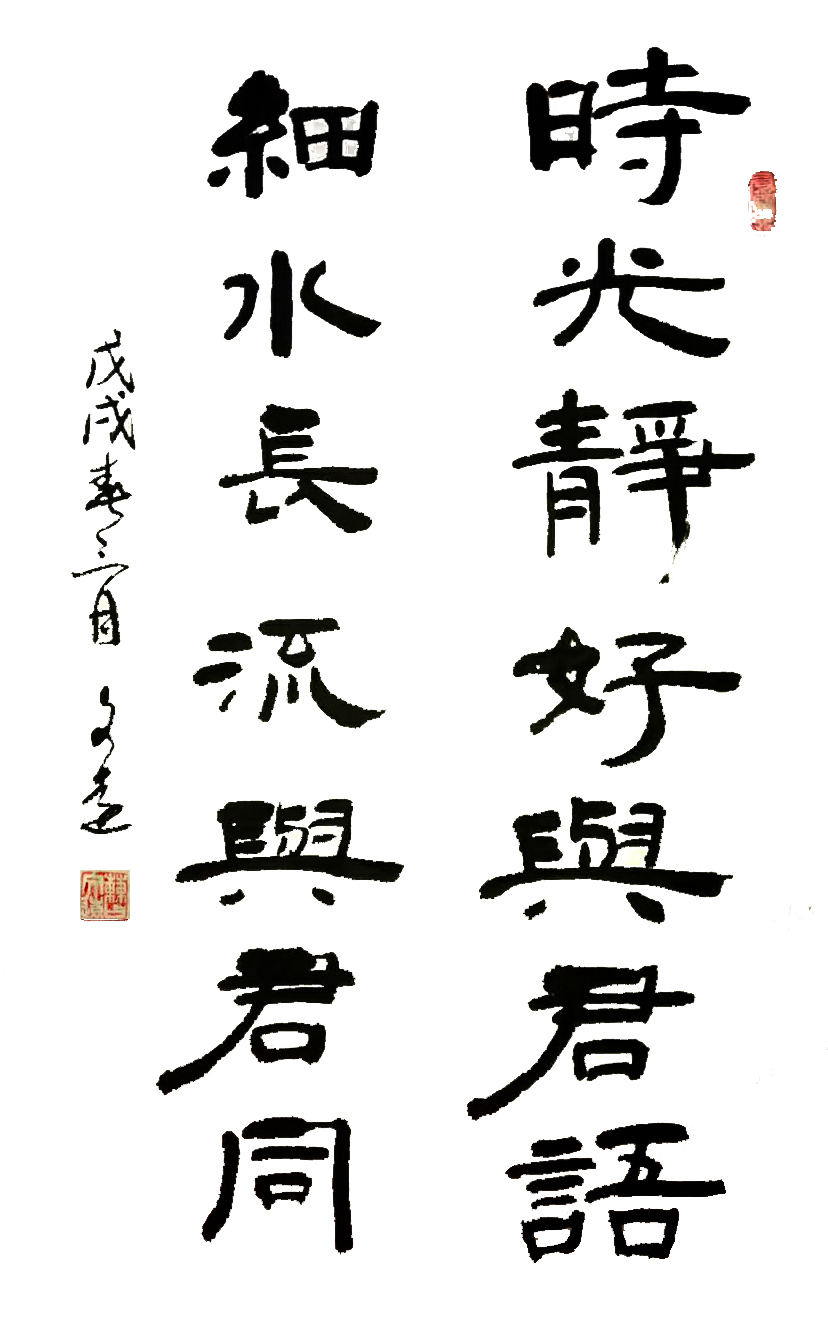 時光靜好與君語
細水長流與君同
戊戌春三月 文遠